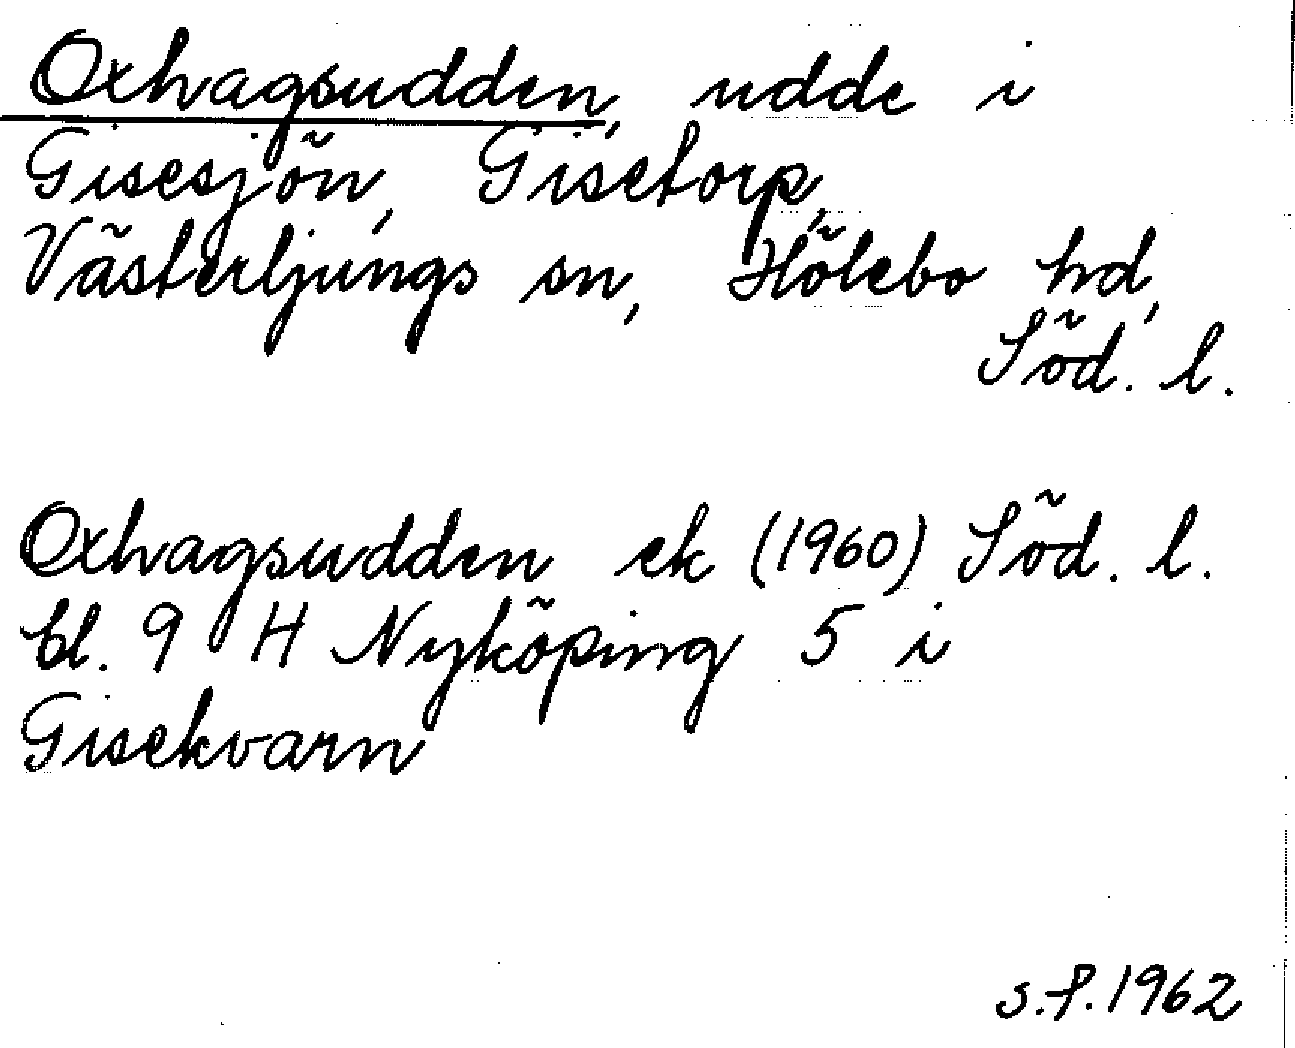 Oxhagsudden, udde i
Gisesjön, Gisetorp,
Västerljungs sn, Hölebo hd,
Söd. l.
Oxhagsudden ek (1960) Söd. l.
bl. 9 H Nyköping 5 i
Gisekvarn
s.f. 1962